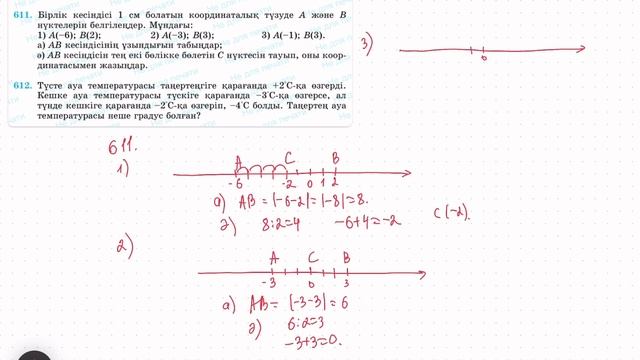 611. Бірлік кесіндісі 1 см болатын координаталық түзуде A және B
нүктелерін белгілеңдер. Мұндағы:
1) A(−6); B(2); 2) A(−3); B(3); 3) A(−1); B(3).
а) AB кесіндісінің ұзындығын табыңдар;
ә) AB кесіндісін тең екі бөлікке бөлетін C нүктесін тауып, оны коор-
динатасымен жазыңдар.
612. Түсте ауа температурасы таңертеңгіге қарағанда +2°C-қа өзгерді.
Кешке ауа температурасы түскіге қарағанда −3°C-қа өзгерсе, ал
түнде кешкіге қарағанда −2°C-қа өзгеріп, −4°C болды. Таңертең ауа
температурасы неше градус болған?
3)
0
611.
1)
A C B
-6 -2 0 1 2
а) AB = |-6-2| = |-8| = 8.
ә) 8:2=4 -6+4=-2 C(-2).
2)
A C B
-3 0 3
а) AB = |-3-3| = 6
ә) 6:2=3
-3+3=0.